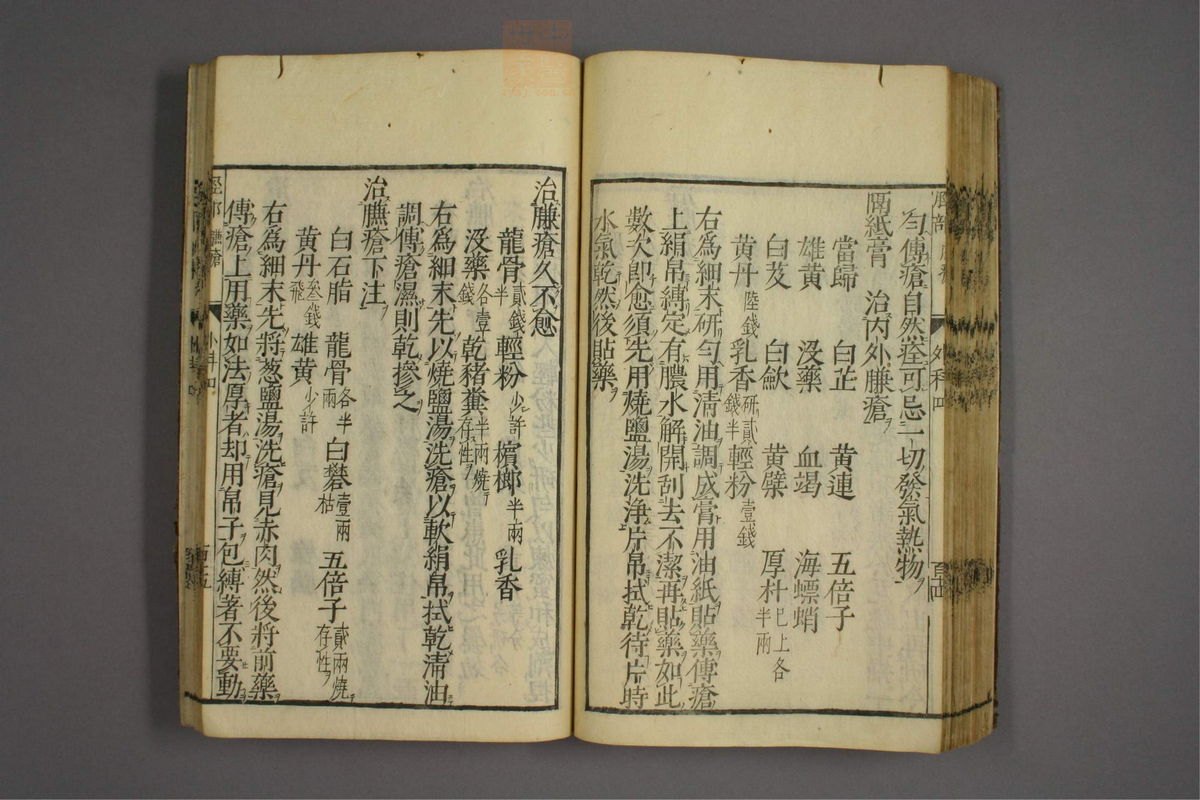 勻傅瘡自然痊可忌一切發氣熱物
隔紙膏　治内外臁瘡
當歸　白芷　黄連　五倍子
雄黄　沒藥　血竭　海螵蛸
白芨　白歛　黄蘗　厚朴已上各半兩
黄丹陸錢　乳香研貳錢半　輕粉壹錢
右爲細末研勻用清油調成膏用油紙貼藥傅瘡
上絹帛縛定有膿水解開刮去不潔再貼藥如此
數次即愈須先用燒鹽湯洗淨片帛拭乾待片時
水氣乾然後貼藥
外科四
百十四
治臁瘡久不愈
龍骨貳錢半　輕粉少許　檳榔半兩　乳香
沒藥各壹錢　乾豬糞半兩燒存性
右爲細末先以燒鹽湯洗瘡以軟絹帛拭乾清油
調傅瘡濕則乾摻之
治臁瘡下注
白石脂　龍骨各半兩　白礬壹兩枯　五倍子貳兩燒存性
黄丹叁錢飛　雄黄少許
右爲細末先將葱鹽湯洗瘡見赤肉然後將前藥
傅瘡上用藥如法厚者却用帛子包縛著不要動
臁瘡
百十五